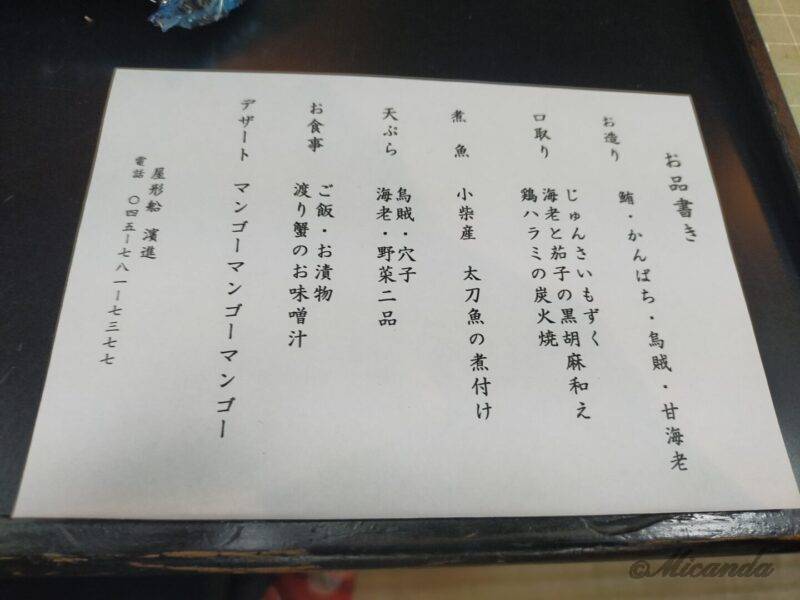 お品書き
お造り 鮪・かんぱち・烏賊・甘海老
口取り じゅんさいもずく
海老と茄子の黒胡麻和え
鶏ハラミの炭火焼
煮魚 小柴産 太刀魚の煮付け
天ぷら 烏賊・穴子
海老・野菜二品
お食事 ご飯・お漬物
渡り蟹のお味噌汁
デザート マンゴーマンゴーマンゴー
屋形船 濱進
電話 〇四五ー七八一ー七三七七
©Micanda